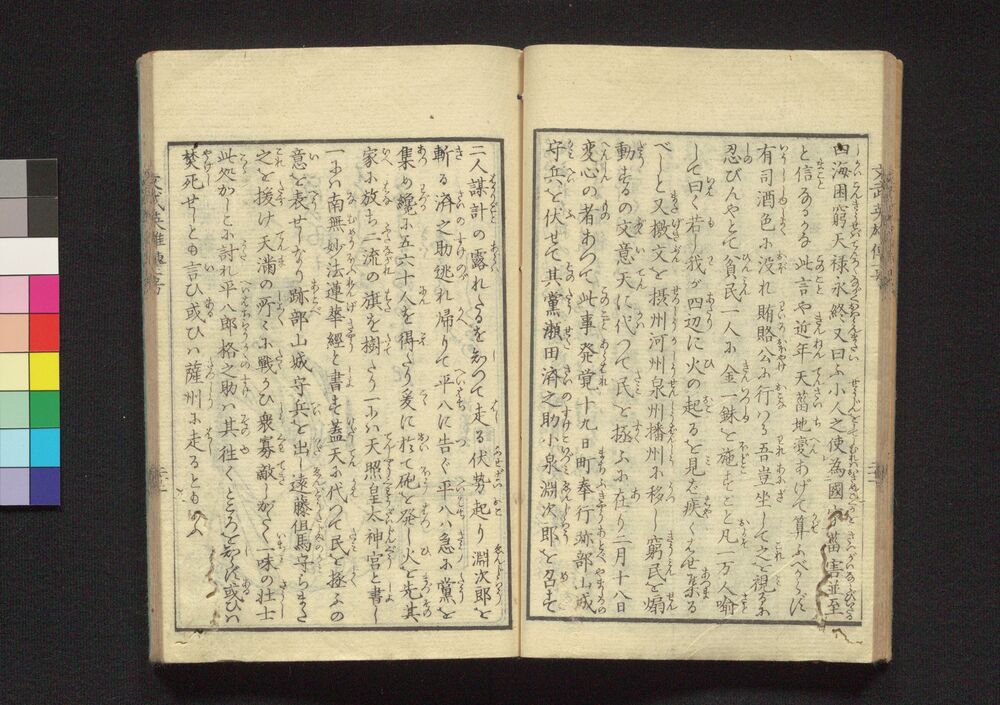 四海困窮天禄永終又曰ふ小人之使為國家菑害並至
と信あるかな此言や近年天菑地変あげて算ふべからず
有司酒色に没れ賄賂公に行はる吾豈坐して之を視るに
忍びんやとて貧民一人に金一銖を施すこと凡一万人喩
して曰く若し我が四辺に火の起るを見ば疾く馳せ集る
べしと又檄文を摂州河州泉州播州に移し窮民を煽
動する の文意天に代つて民を拯ふに在り二月十八日
変心の者あつて此事発覚十九日町奉行跡部山城
守兵を伏せて其黨瀬田済之助小泉淵次郎を召す
二人謀計の露れたるを知つて走る伏勢起り淵次郎を
斬る済之助逃れ帰りて平八に告ぐ平八急に黨を
集め纔に五六十人を得たり爰に於て砲を発し火を先其
家に放ち一流の旗を樹たり一には天照皇太神宮と書し
一には南無妙法蓮華經と書す蓋天に代つて民を拯ふの
意を表せしなり跡部山城守兵を出し遠藤但馬守らまた
之を援け天満の所々に戦ひ衆寡敵しがたく一味の壮士
此処かしこに討れ平八郎格之助は其往くところを知らず或ひは
焚死せしとも言ひ或ひは薩州に走るとも いふ
文武英雄傳
文武英雄傳